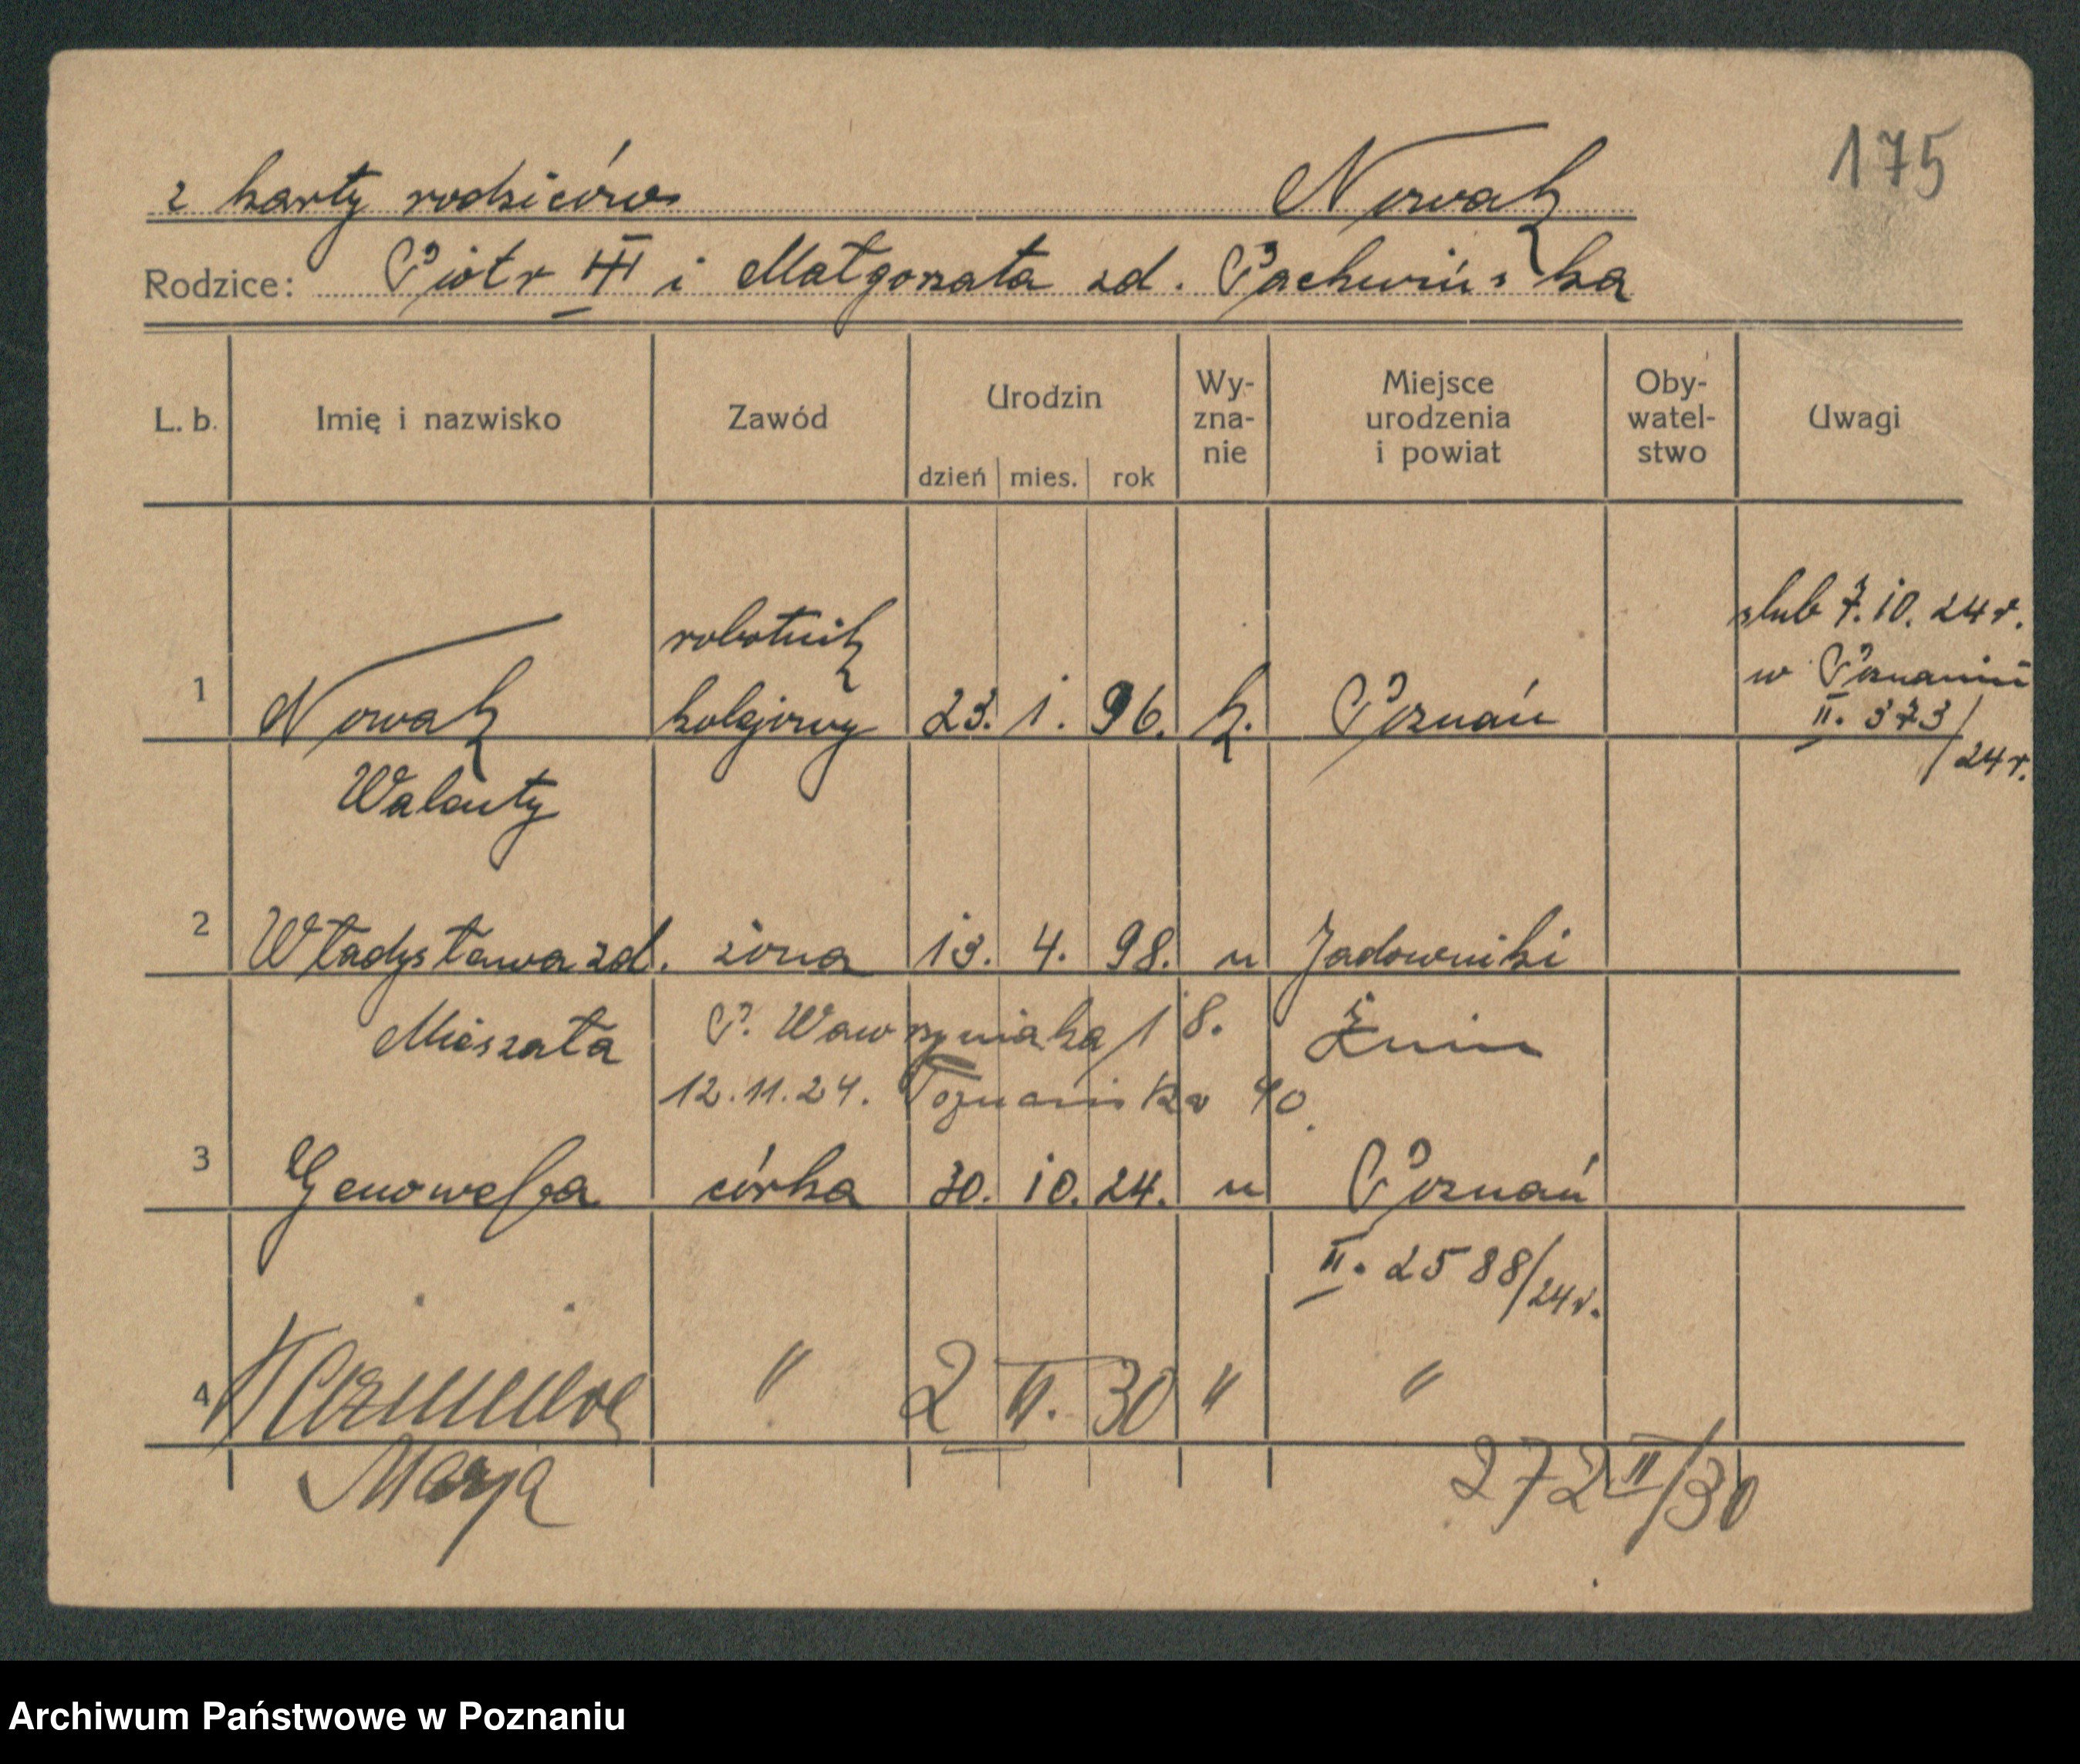 175
z karty rodziców Nowak
Rodzice: Piotr III i Małgorzata zd. Pachwińska
L. b. Imię i nazwisko Zawód Urodzin Wy-zna-nie Miejsce urodzenia i powiat Oby-watel-stwo Uwagi
dzień mies. rok
ślub 7.10.24 r.
robotnik w Poznaniu
1 Nowak kolejowy 23. 1. 96. k. Poznań II. 373/24 r.
Walenty
2 Władysława zd. żona 13. 4. 98. " Jadowniki
Mieszała P. Wawrzyniaka 18. Żnin
12.11.24. Poznańska 40.
3 Genowefa córka 30. 10. 24. " Poznań
II. 2588/24 r.
4 Kazimiera " 2 II. 30 " "
Marja 272 II/30
Archiwum Państwowe w Poznaniu